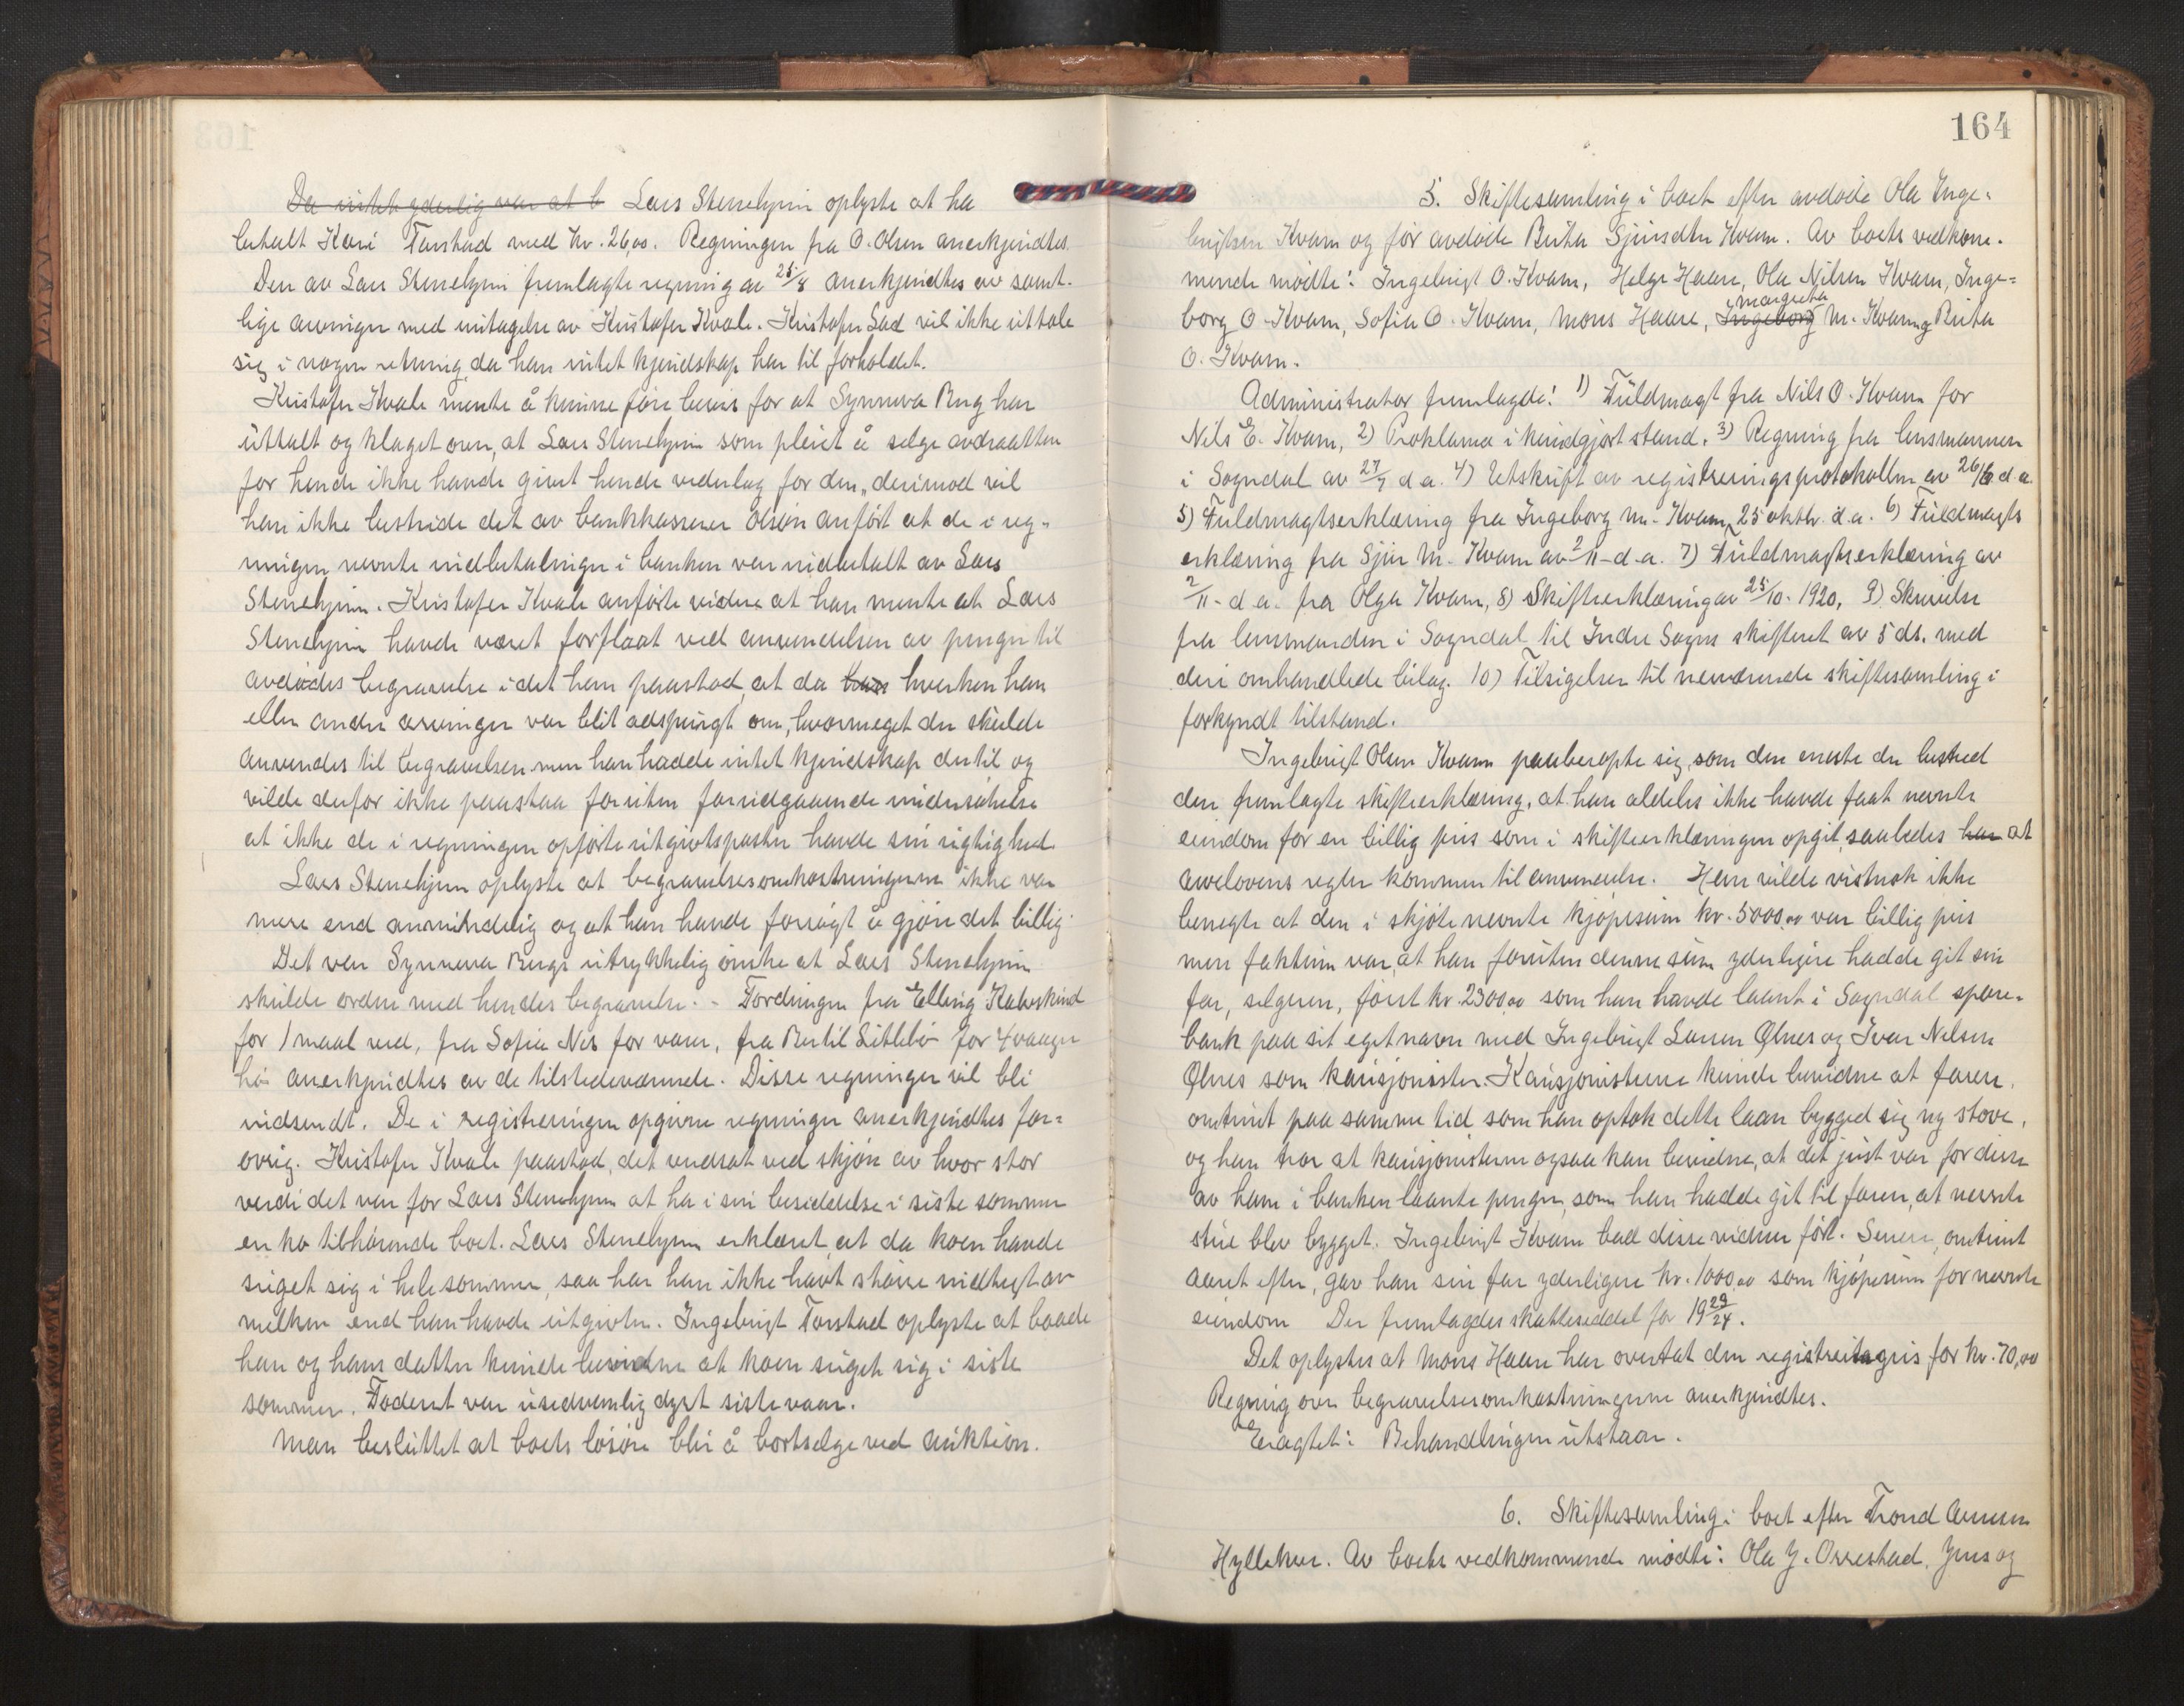 Da intet yderlig var at b Lars Stenehjem oplyste at ha
betalt Kari Tønstad med kr. 26,00. Regningen fra O. Olsen anerkjendtes.
Den av Lars Stenehjem fremlagte regning av 25/8 anerkjendtes av samt-
lige arvinger med untagelse av Kristofer Kvale. Kristofer Lad vil ikke uttale
sig i nogen retning, da han intet kjendskap har til forholdet.
Kristofer Kvale mente å kunne føre bevis for at Synneva Bug har
uttalt og klaget over, at Lars Stenehjem som pleiet å selge avdraatten
for hende ikke havde givet hende vederlag for den, derimod vil
han ikke bestride det av bankkasserer Olsen anført at de i reg-
ningen nevnte indbetalinger i banken var indbetalt av Lars
Stenehjem. Kristofer Kvale anførte videre at han mente at Lars
Stenehjem havde været for flaat ved anvendelsen av penger til
avdødes begravelse idet han paastod, at da han hverken han
eller andre arvinger var blit adspurgt om, hvormeget der skulde
anvendes til begravelsen men han hadde intet kjendskap dertil og
vilde derfor ikke paastaa foruten forutgaaende undersøkelse
at ikke de i regningen opførte utgivtsposter havde sin rigtighed
Lars Stenehjem oplyste at begravelsesomkostningerne ikke var
mere end almindelig og at han havde forsøgt å gjøre det billig
Det var Synneva Bugs utrykkelig ønske at Lars Stenehjem
skulde ordne med hendes begravelse. - Fordringen fra Elling Kalveskind
for 1 maal ved, fra Sofie Nes for varer, fra Bertil Litlebø for 4 vaager
høi anerkjendtes av de tilstedeværende. Disse regninger vil bli
indsendt. De i registreringen opgivne regninger anerkjendtes for-
øvrig. Kristofer Kvale paastod, det verdsat ved skjøn av hvor stor
verdi det var for Lars Stenehjem at ha i sin besiddelse i siste sommer
en ko tilhørende boet. Lars Stenehjem erklæret, at da koen havde
suget sig i hele sommer, saa har han ikke havt større indtegt av
melken end han havde utgivter. Ingebrigt Tønstad oplyste at baade
han og hans datter kunde bevidne at koen suget sig i siste
sommer. Foderet var usedvanlig dyrt siste vaar.
Man besluttet at boets løsøre blir å bortselge ved auktion.
164
5. Skiftesamling i boet efter avdøde Ola Inge-
brigtsen Kvam og før avdøde Brita Sjursdtr Kvam. Av boets vedkom-
mende mødte: Ingebrigt O. Kvam, Helge Haare, Ola Nilsen Kvam, Inge-
borg O. Kvam, Sofia O. Kvam, Mons Haare, Ingeborg Margreta M. Kvam og Brita
O. Kvam.
Administrator fremlagde: 1) Fuldmagt fra Nils O. Kvam for
Nils E. Kvam, 2) Proklama i kundgjort stand. 3) Regning fra lensmannen
i Sogndal av 27/7 d.a. 4) Utskrift av registreringsprotokollen av 26/6 d.a.
5) Fuldmagtserklæring fra Ingeborg M. Kvam, 25 oktbr. d.a. 6) Fuldmagts
erklæring fra Sjur M. Kvam av 2/11 d.a. 7) Fuldmagtserklæring av
2/11 - d.a. fra Olga Kvam, 8) Skifteerklæring av 25/10 - 1920, 9) Skrivelse
fra lensmanden i Sogndal til Indre Sogns skifteret av 5 ds. med
deri omhandlede bilag. 10) Tilsigelser til nerværende skiftesamling i
forkyndt tilstand.
Ingebrigt Olsen Kvam pauberopte sig, som den eneste der bestred
den fremlagte skifteerklæring, at han aldeles ikke havde faat nevnte
eiendom for en billig pris som i skifteerklæringen opgit, saaledes han at
arvelovens regler kommer til anvendelse. Han vilde vistnok ikke
benegte at den i skjøte nevnte kjøpesum kr. 5000,00 var billig pris
men faktum var, at han foruten denne sum yderligere hadde git sin
far, selgeren, først kr. 2300,00 som han havde laant i Sogndal spare-
bank paa sit eget navn med Ingebrigt Larsen Ølnes og Ivar Nilsen
Ølnes som kausjonister. Kausjonisterne kunde bevidne at faren,
omtrent paa samme tid som han optok dette laan bygged sig ny stove,
og han tror at kausjonisterne ogsaa kan bevidne, at det just var for disse
av ham i banken laante penger, som han hadde git til faren, at nevnte
stue blev bygget. Ingebrigt Kvam bad disse vidner ført. Senere, omtrent
aaret efter, gav han sin far yderligere kr. 1000,00 som kjøpesum for nevnte
eiendom Der fremlagdes skatteseddel for 19 23/24.
Det oplystes at Mons Haare har overtat den registrerte gris for kr. 70,00
Regning over begravelsesomkostningerne anerkjendtes.
Eragtet: Behandlingen utstaar.
6. Skiftesamling i boet efter Trond
Hyllekve. Av boets vedkommende mødte: Ola J. Orrestad, Jens og